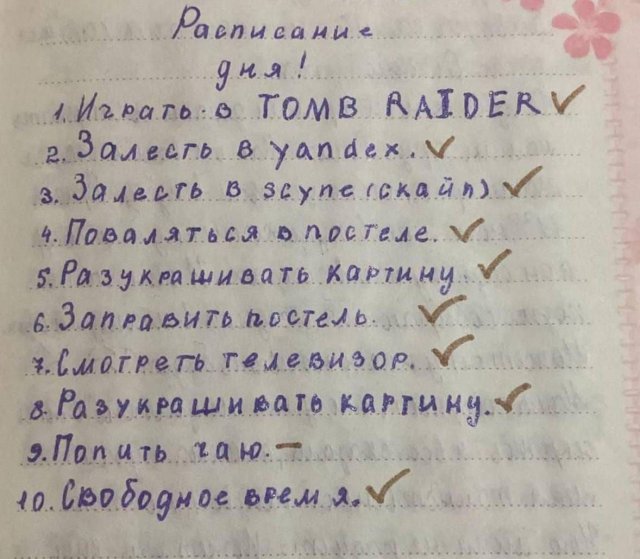 Расписание
дня!
1. Играть в TOMB RAIDER ✓
2. Залесть в yandex. ✓
3. Залесть в scype (скайп) ✓
4. Поваляться в постеле. ✓
5. Разукрашивать картину. ✓
6. Заправить постель. ✓
7. Смотреть телевизор. ✓
8. Разукрашивать картину. ✓
9. Попить чаю. –
10. Свободное время. ✓